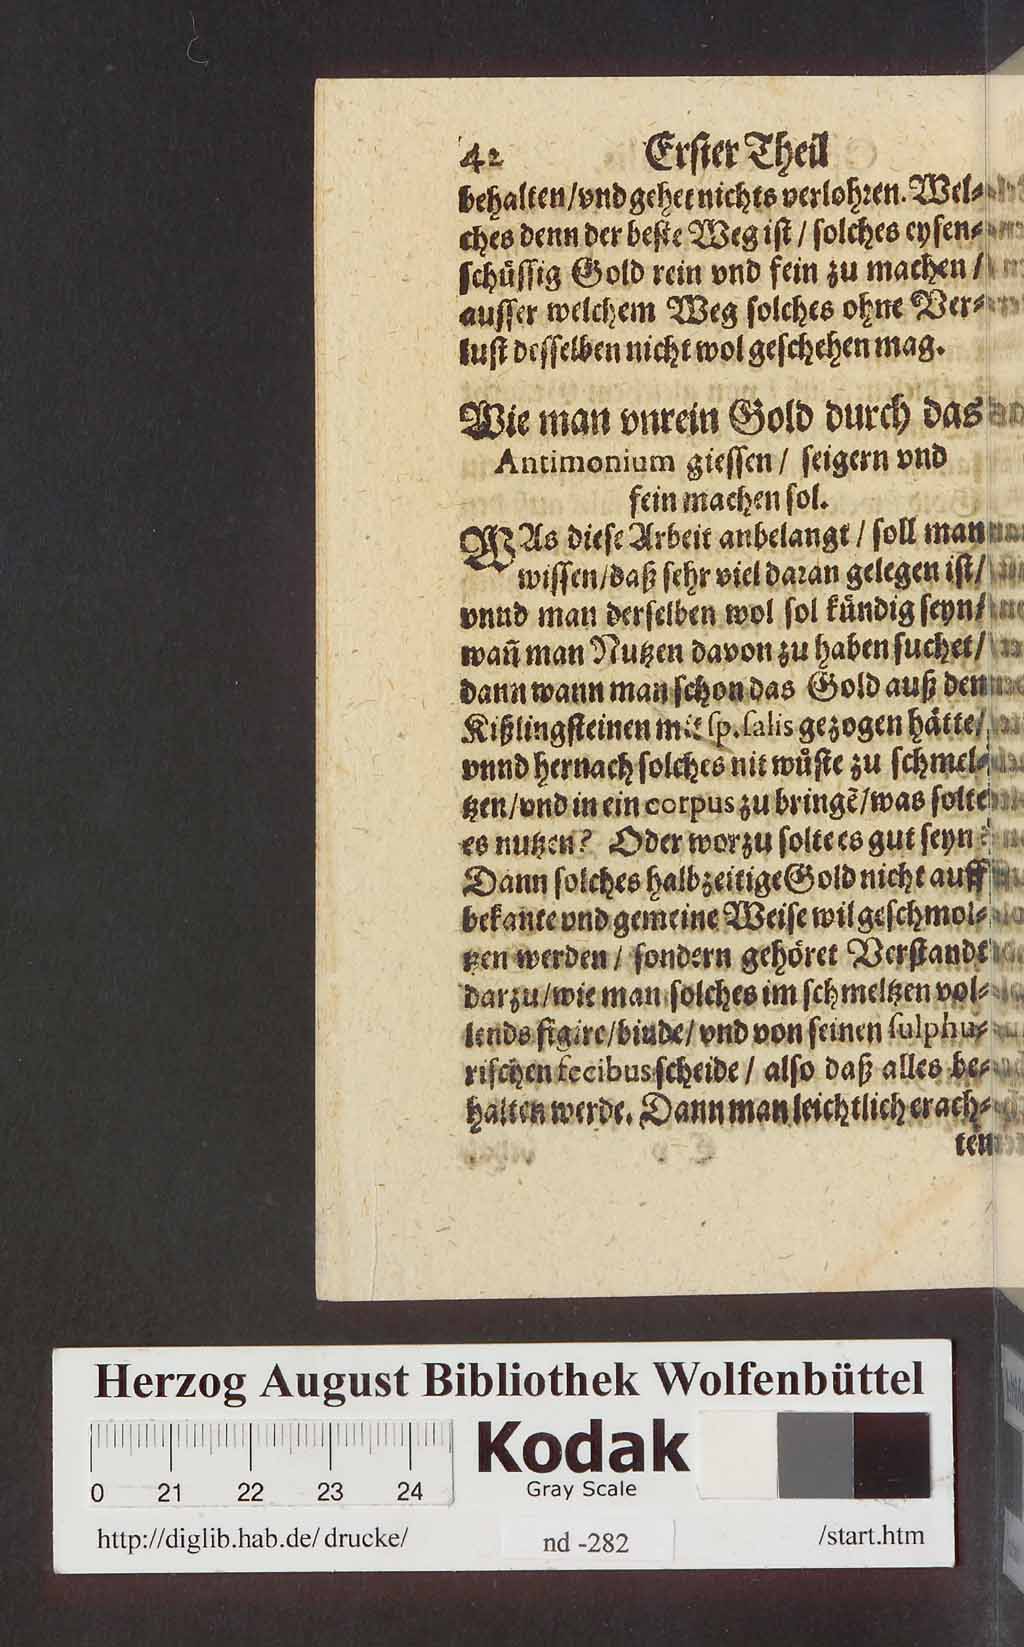 42 Erster Theil
behalten/vnd gehet nichts verlohren. Wel-
ches denn der beste Weg ist / solches eysen-
schüssig Gold rein vnd fein zu machen /
ausser welchem Weg solches ohne Ver-
lust desselben nicht wol geschehen mag.
Wie man vnrein Gold durch das
Antimonium giessen / seigern vnd
fein machen sol.
WAs diese Arbeit anbelangt / soll man
wissen/daß sehr viel daran gelegen ist/
vnnd man derselben wol sol kündig seyn/
wañ man Nutzen davon zu haben suchet/
dann wann man schon das Gold auß den
Kißlingsteinen mit sp. salis gezogen hätte/
vnnd hernach solches nit wüste zu schmel-
tzen/vnd in ein corpus zu bringẽ/was solte
es nutzen? Oder worzu solte es gut seyn?
Dann solches halbzeitige Gold nicht auff
bekante vnd gemeine Weise wil geschmol-
tzen werden / sondern gehöret Verstandt
darzu/wie man solches im schmeltzen vol-
lends figire/binde/ vnd von seinen sulphu-
rischen fecibus scheide / also daß alles be-
halten werde. Dann man leichtlich erach-
ten
Herzog August Bibliothek Wolfenbüttel
Kodak
Gray Scale
0 21 22 23 24
http://diglib.hab.de/ drucke/ nd -282 /start.htm